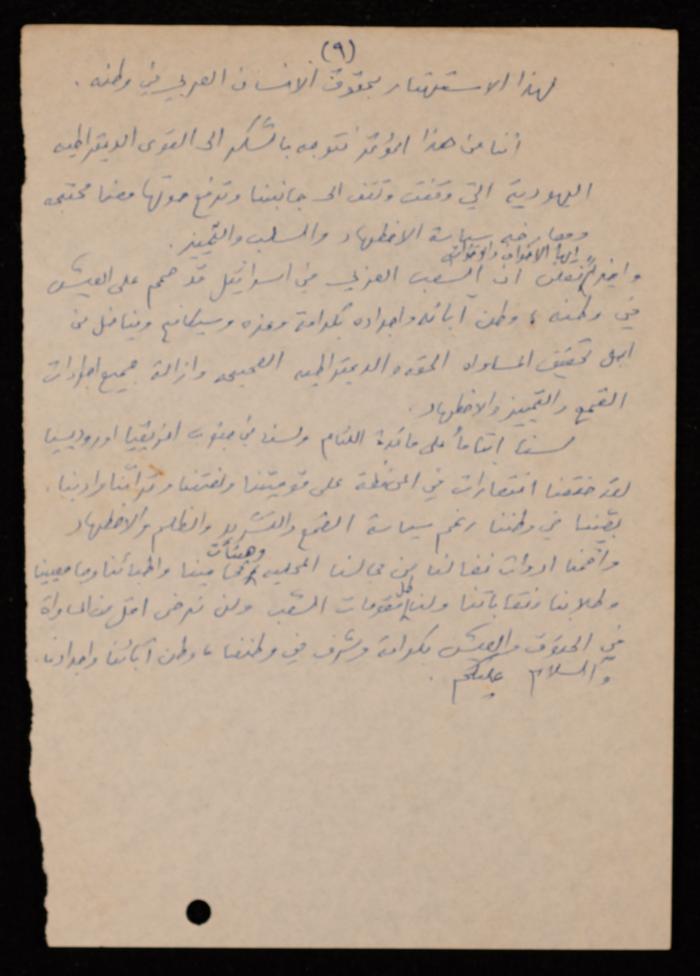 (٩)
لهذا الاستهتار بحقوق الانسان العربي في وطنه .
اننا من هذا المؤتمر نتوجه بالشكر الى القوى الديمقراطيه
اليهودية التي وقفت وتقف الى جانبنا وترفع صوتها معنا محتجه
ومعارضه سياسة الاضطهاد والسلب والتمييز .
ايها الاخوان والاخوات
واخيراً نعلن ان الشعب العربي في اسرائيل قد صمم على العيش
في وطنه ، وطن آبائه واجداده بكرامة وعزه وسيكافح ويناضل من
اجل تحقيق المساواه الحقه والديمقراطيه الصحيحه وازالة جميع اجراءات
القمع والتمييز والاضطهاد .
لسنا ايتاماً على مائدة اللئام ولسنا في جنوب افريقيا او روديسيا
لقد حققنا انتصارات في المحافظة على قوميتنا ولغتنا وتراثنا وادبنا .
بقينا في وطننا رغم سياسة القمع والتشريد والظلم والاضطهاد
وهيئات
واقمنا ادوات نضالنا من مجالسنا المحليه محامينا واطبائنا وجامعيينا
وطلابنا ونقاباتنا ولنا كل مقومات الشعب ولن نرضى اقل من المساواة
في الحقوق والعيش بكرامة وشرف في وطننا ، وطن آبائنا واجدادنا .
والسلام عليكم .